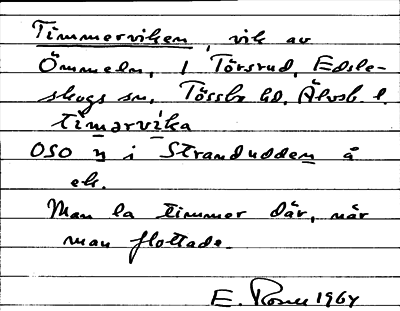 Timmerviken, vik av
Ömmeln, 1 Törsrud, Edsle-
skogs sn, Tössbo hd, Älvsb. l.
timərvika
OSO ŋ i Strandudden å
ek.
Man la timmer där, när
man flottade.
E. 1964